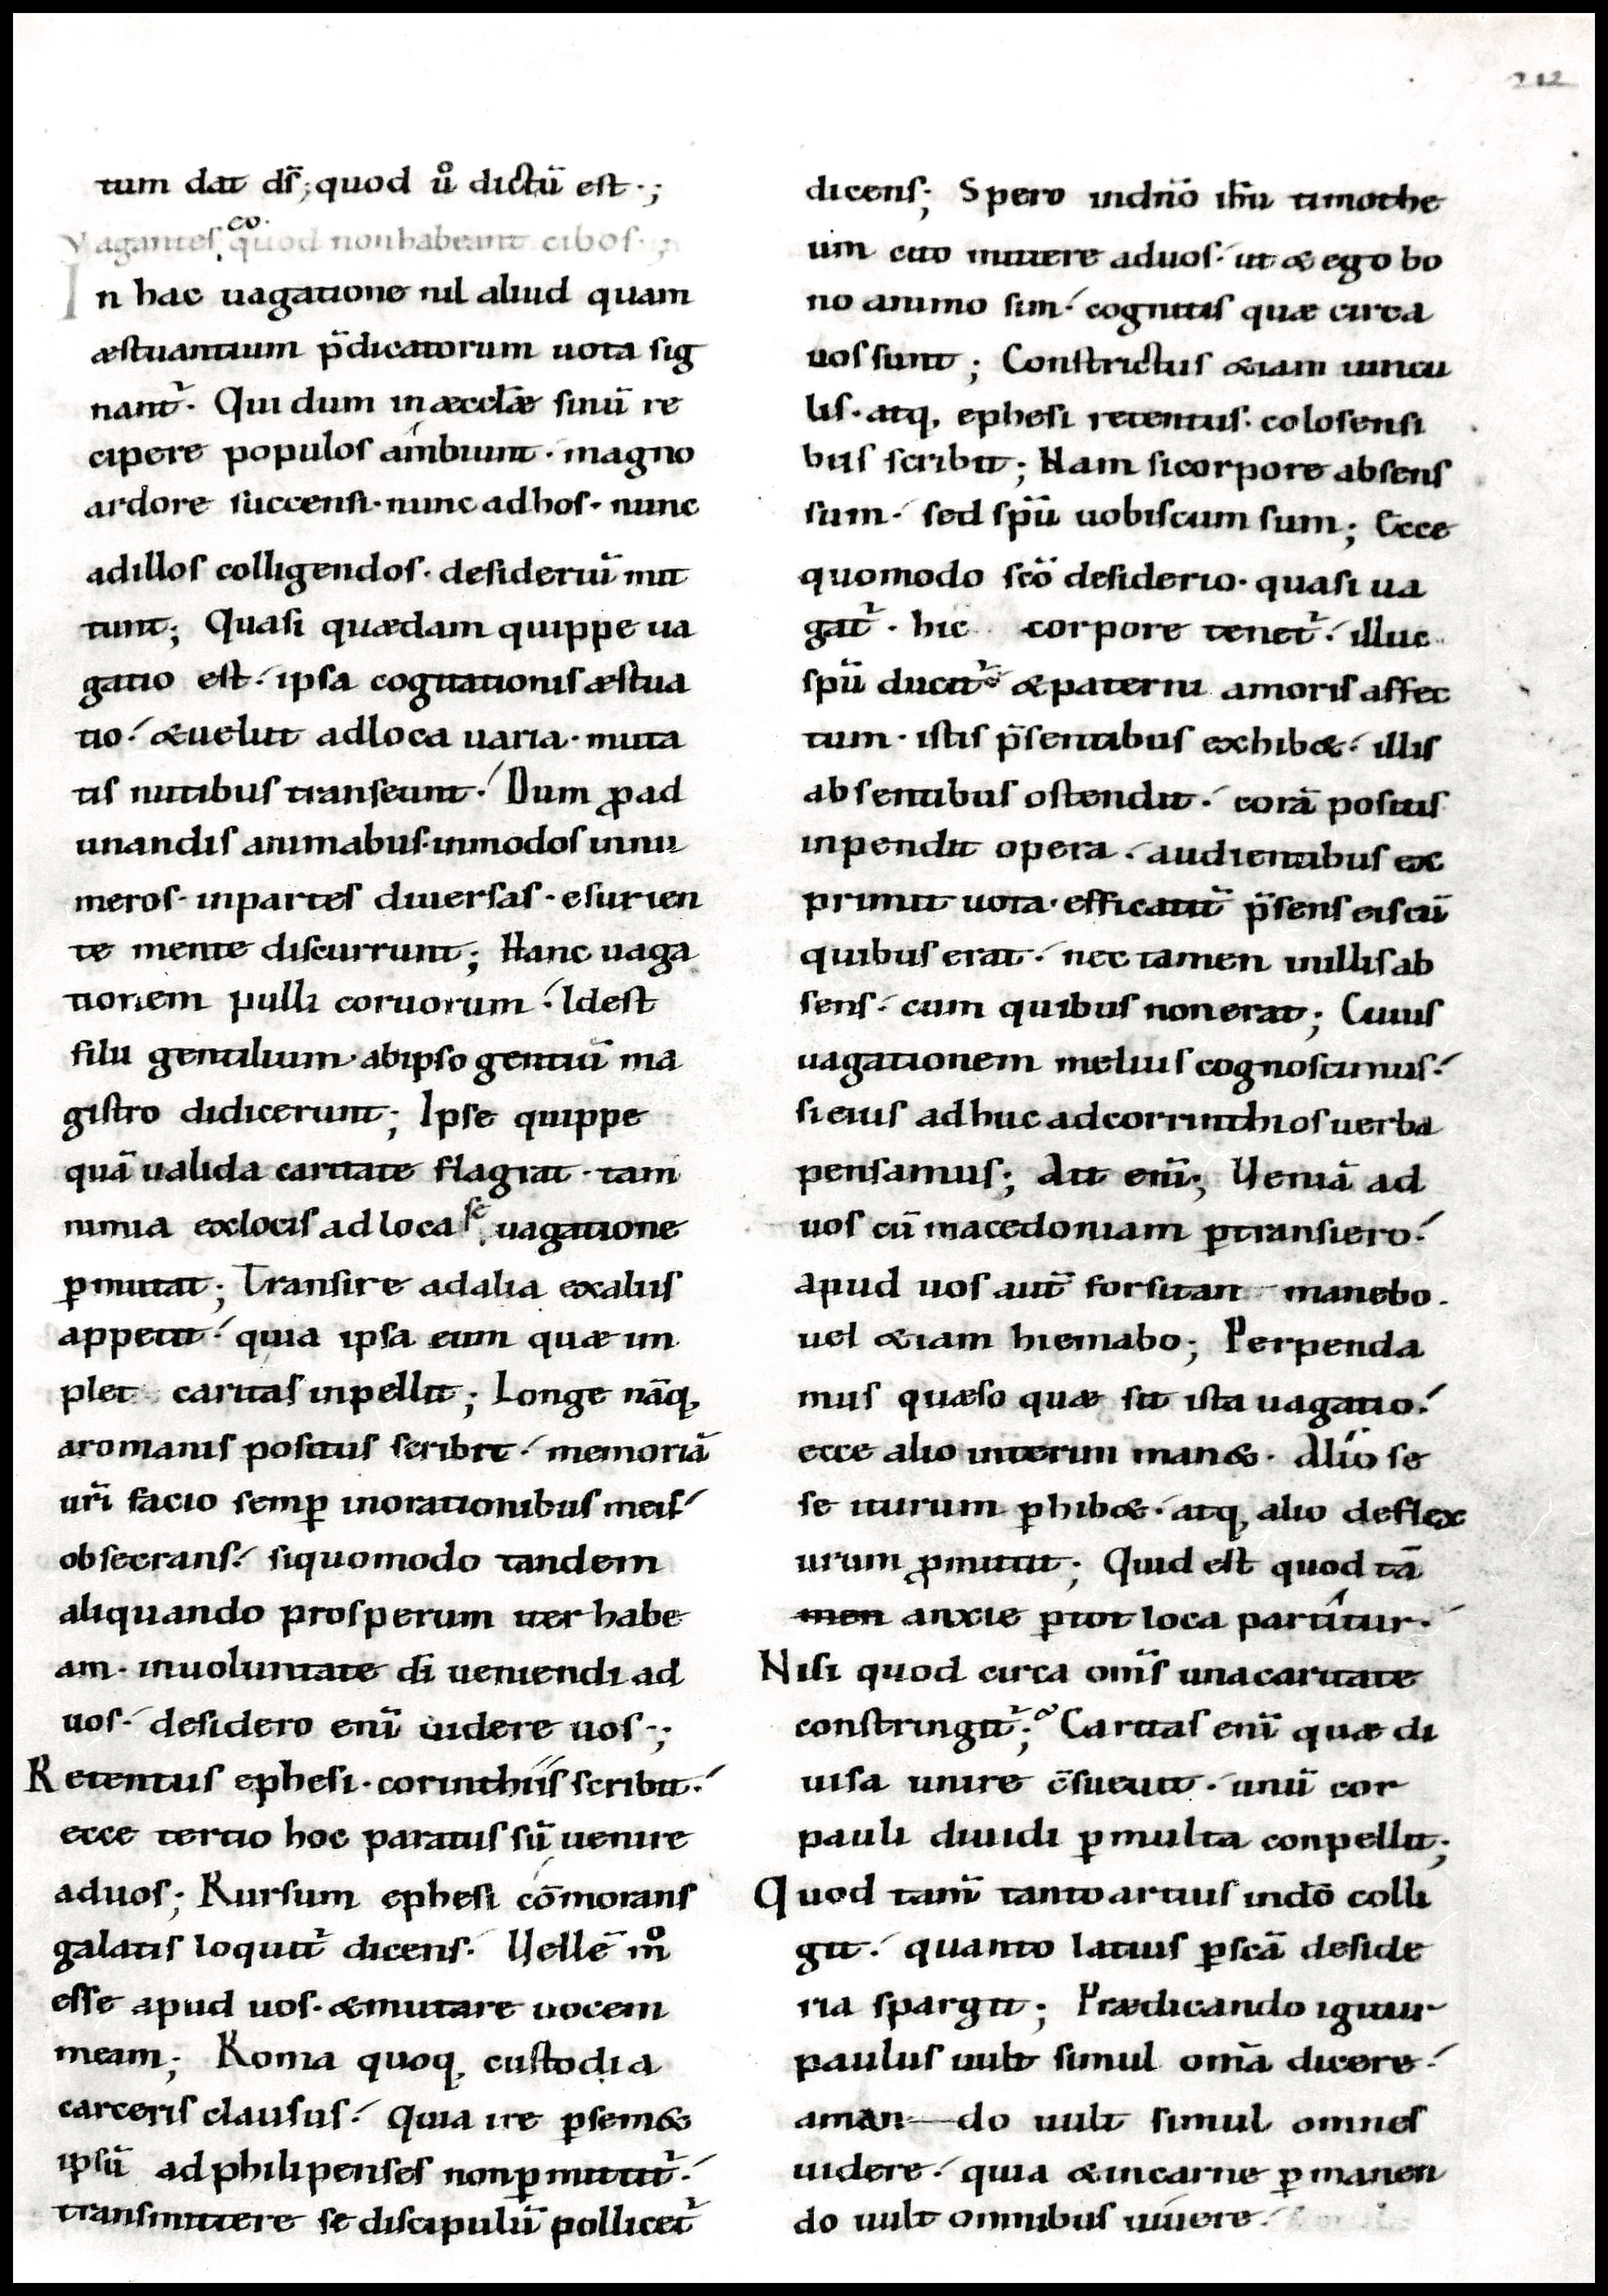 212
tum dat d̄s; quod ů dictū est·;
Vagantes, quod non habeant cibos·;
co·
In hac uagatione nil aliud quam
æstuantium p̄dicatorum uota sig
nant᷑· Qui dum in æccl̄æ sinū re
cipere populos ambiunt· magno
ardore succensi· nunc ad hos· nunc
ad illos colligendos· desideriū mit
tunt; Quasi quædam quippe ua
gatio est· ipsa cogitationis æstua
tio· & uelut ad loca uaria· muta
tis nutibus transeunt· Dum ꝓ ad
unandis animabus· in modos innu
meros· in partes diuersas· esurien
te mente discurrunt; Hanc uaga
tionem pulli coruorum· Idest
filii gentilium· ab ipso gentiū ma
gistro didicerunt; Ipse quippe
quā ualida caritate flagrat· tam
nimia ex locis ad loca se uagatione
ꝑmutat; Transire ad alia ex aliis
appetit· quia ipsa eum quæ im
plet caritas inpellit; Longe nāq,
a romanis positus scribit· memoriā
ur̄i facio semꝑ in orationibus meis·
obsecrans· si quo modo tandem
aliquando prosperum iter habe
am· in uoluntate dī ueniendi ad
uos· desidero enī uidere uos·;
Retentus ephesi· corinthiis scribit·
ecce tertio hoc paratus sū uenire
ad uos; Rursum ephesi cōmorans
galatis loquit᷑ dicens· Uellē m̊
esse apud uos· & mutare uocem
meam; Roma quoq, custodia
carceris clausus· Quia ire ꝑ sem&
ipsū ad philipenses non ꝑmittit᷑·
transmittere se discipulū pollicet᷑
dicens; Spero in dn̄o ih̄u timothe
um cito mittere ad uos· ut & ego bo
no animo sim· cognitis quæ circa
uos sunt; Constrictus &iam uincu
lis· atq, ephesi retentus· colosensi
bus scribit; Nam si corpore absens
sum· sed sp̄u uobiscum sum; Ecce
quomodo sc̄o desiderio· quasi ua
gat᷑· hic corpore tenet᷑· illuc
sp̄u ducit᷑· & paterni amoris affec
tum· istis p̄sentibus exhib&· illis
absentibus ostendit· corā positis
inpendit opera· audientibus ex
primit uota· efficacit᷑ p̄sens eis cū
quibus erat· nec tamen nullis ab
sens· cum quibus non erat; Cuius
uagationem melius cognoscimus·
si eius adhuc ad corrinthios uerba
pensamus; Ait enī; Ueniā ad
uos cū macedoniam ꝑtransiero·
apud uos aut̄ forsitan manebo·
uel &iam hiemabo; Perpenda
mus quæso quæ sit ista uagatio·
ecce alio interim man&· Alio se
se iturum ꝑhib&· atq, alio deflex
urum ꝓmittit; Quid est quod tā
men anxie ꝑ tot loca partitur·
Nisi quod circa om̄s una caritate
constringit᷑; Caritas enī quæ di
uisa unire c̄sueuit· unū cor
pauli diuidi ꝑ multa conpellit;
Quod tam̄ tanto artius in dō colli
git· quanto latius ꝑ sc̄a deside
ria spargit; Prædicando igitur
paulus uult simul om̄a dicere·
aman—do uult simul omnes
uidere· quia & in carne ꝑmanen
do uult omnibus uiuere·